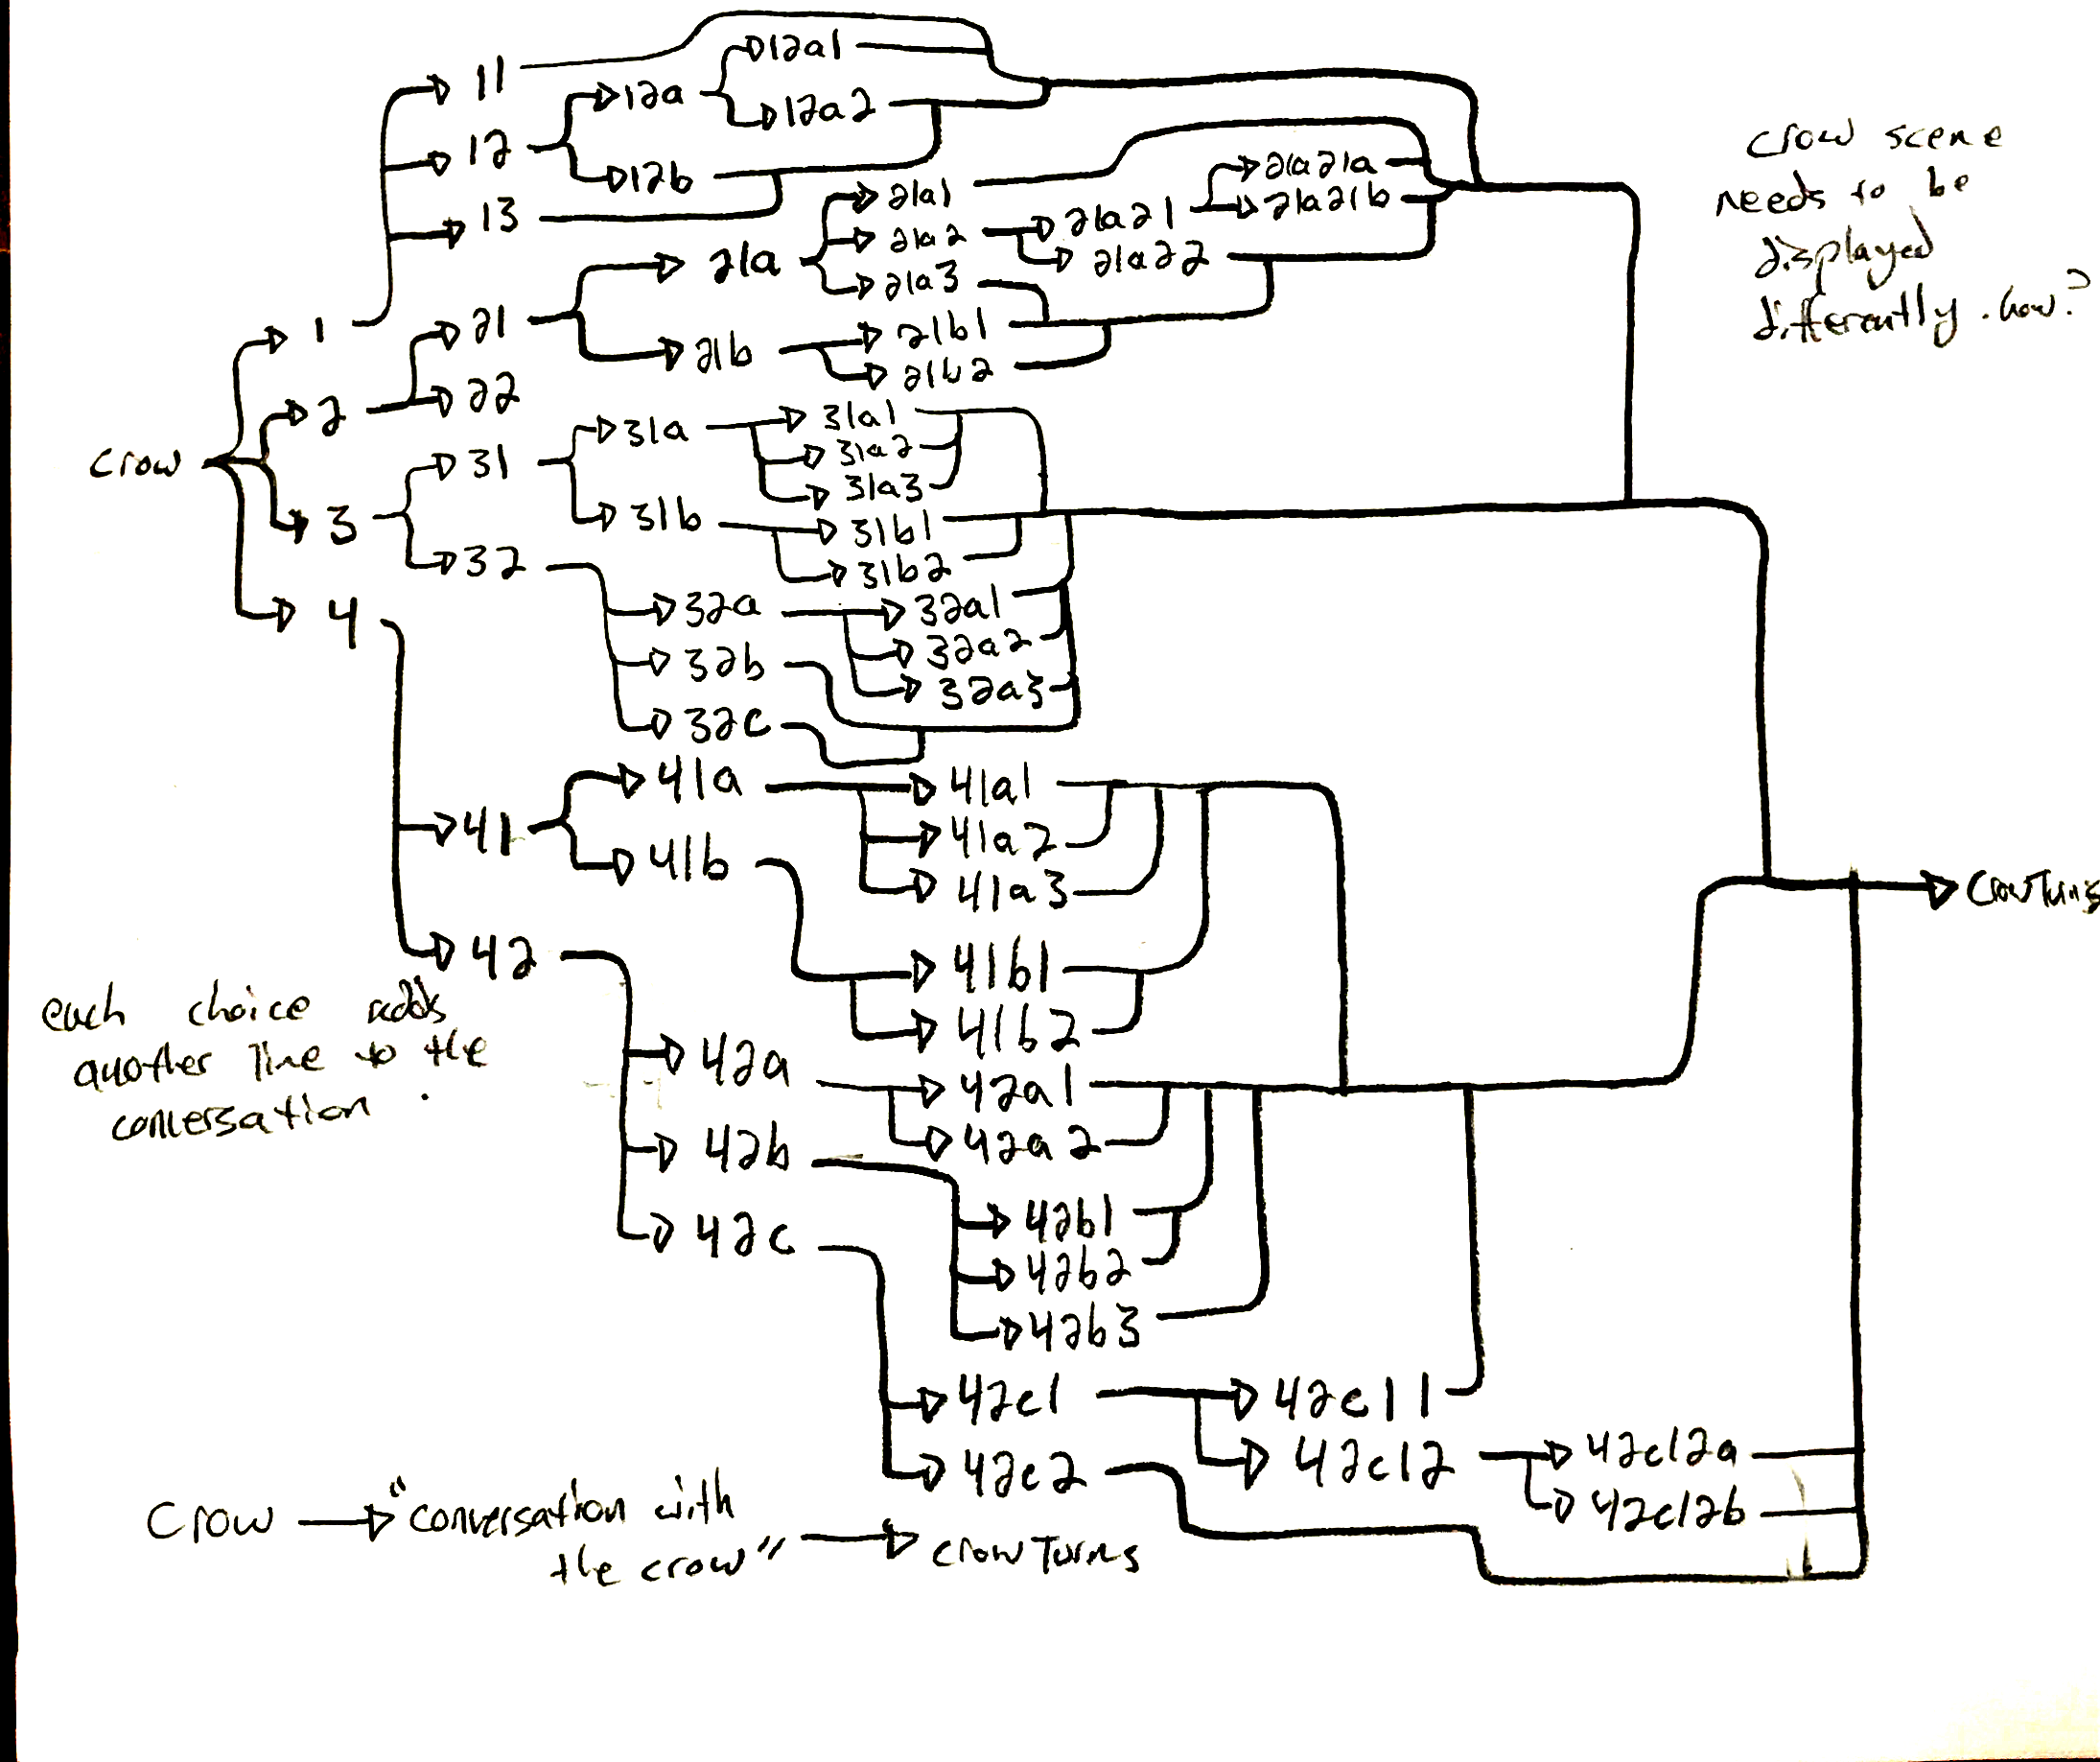 11
12a1
12a
12a2
12
12b
13
21a1
21a21a
21a21b
21a2
21a21
21a
21a22
21a3
1
21
21b1
21b
21b2
2
22
31a
31a1
31a2
31a3
crow
31
31b
31b1
31b2
3
32
32a
32a1
32a2
32b
32a3
32c
4
41a
41a1
41
41a2
41b
41a3
42
41b1
41b2
42a
42a1
42b
42a2
42c
42b1
42b2
42b3
42c1
42c11
42c2
42c12
42c12a
42c12b
crowTurns
crow scene
needs to be
displayed
differently. how?
each choice adds
another line to the
conversation.
Crow
"conversation with
the crow"
crowTurns